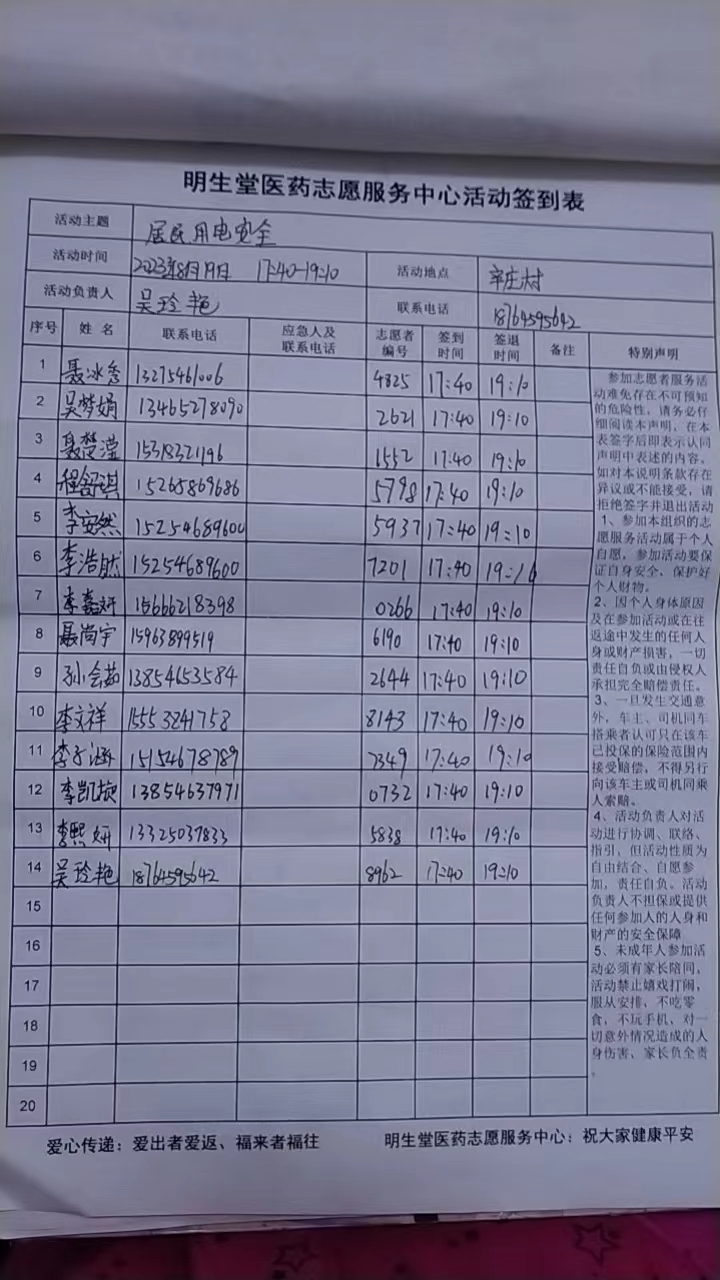 明生堂医药志愿服务中心活动签到表
活动主题 居民用电安全
活动时间 2023年8月19日 17:40-19:10 活动地点 辛庄村
活动负责人 吴玲艳 联系电话 18764595642
序号 姓名 联系电话 应急人及联系电话 志愿者编号 签到时间 签退时间 备注 特别声明
1 聂冰秀 13275461006 4825 17:40 19:10
2 吴梦娟 13465278090 2621 17:40 19:10
3 聂楚滢 15318321196 1552 17:40 19:10
4 程舒琪 15265869686 5798 17:40 19:10
5 李安然 15254689600 5937 17:40 19:10
6 李浩然 15254689600 7201 17:40 19:10
7 李嘉妍 15666218398 0266 17:40 19:10
8 聂尚宇 15963899519 6190 17:40 19:10
9 孙会茹 13854653584 2644 17:40 19:10
10 李文祥 15553241758 8143 17:40 19:10
11 李子涵 15154678789 7349 17:40 19:10
12 李凯旋 13854637971 0732 17:40 19:10
13 李熙妍 13325037833 5838 17:40 19:10
14 吴玲艳 18764595642 8962 17:40 19:10
15
16
17
18
19
20
参加志愿者服务活
动难免存在不可预知
的危险性，请务必仔
细阅读本声明，在本
表签字后即表示认同
声明中表述的内容。
如对本说明条款存在
异议或不能接受，请
拒绝签字并退出活动
1、参加本组织的志
愿服务活动属于个人
自愿，参加活动要保
证自身安全，保护好
个人财物。
2、因个人身体原因
及在参加活动或在往
返途中发生的任何人
身或财产损害，一切
责任自负或由侵权人
承担完全赔偿责任。
3、一旦发生交通意
外，车主、司机同车
搭乘者认可只在该车
已投保的保险范围内
接受赔偿，不得另行
向该车主或司机同乘
人索赔。
4、活动负责人对活
动进行协调、联络、
指引，但活动性质为
自由结合、自愿参
加，责任自负。活动
负责人不担保或提供
任何参加人的人身和
财产的安全保障
5、未成年人参加活
动必须有家长陪同，
活动禁止嬉戏打闹，
服从安排，不吃零
食，不玩手机，对一
切意外情况造成的人
身伤害，家长负全责
。
爱心传递：爱出者爱返、福来者福往 明生堂医药志愿服务中心：祝大家健康平安